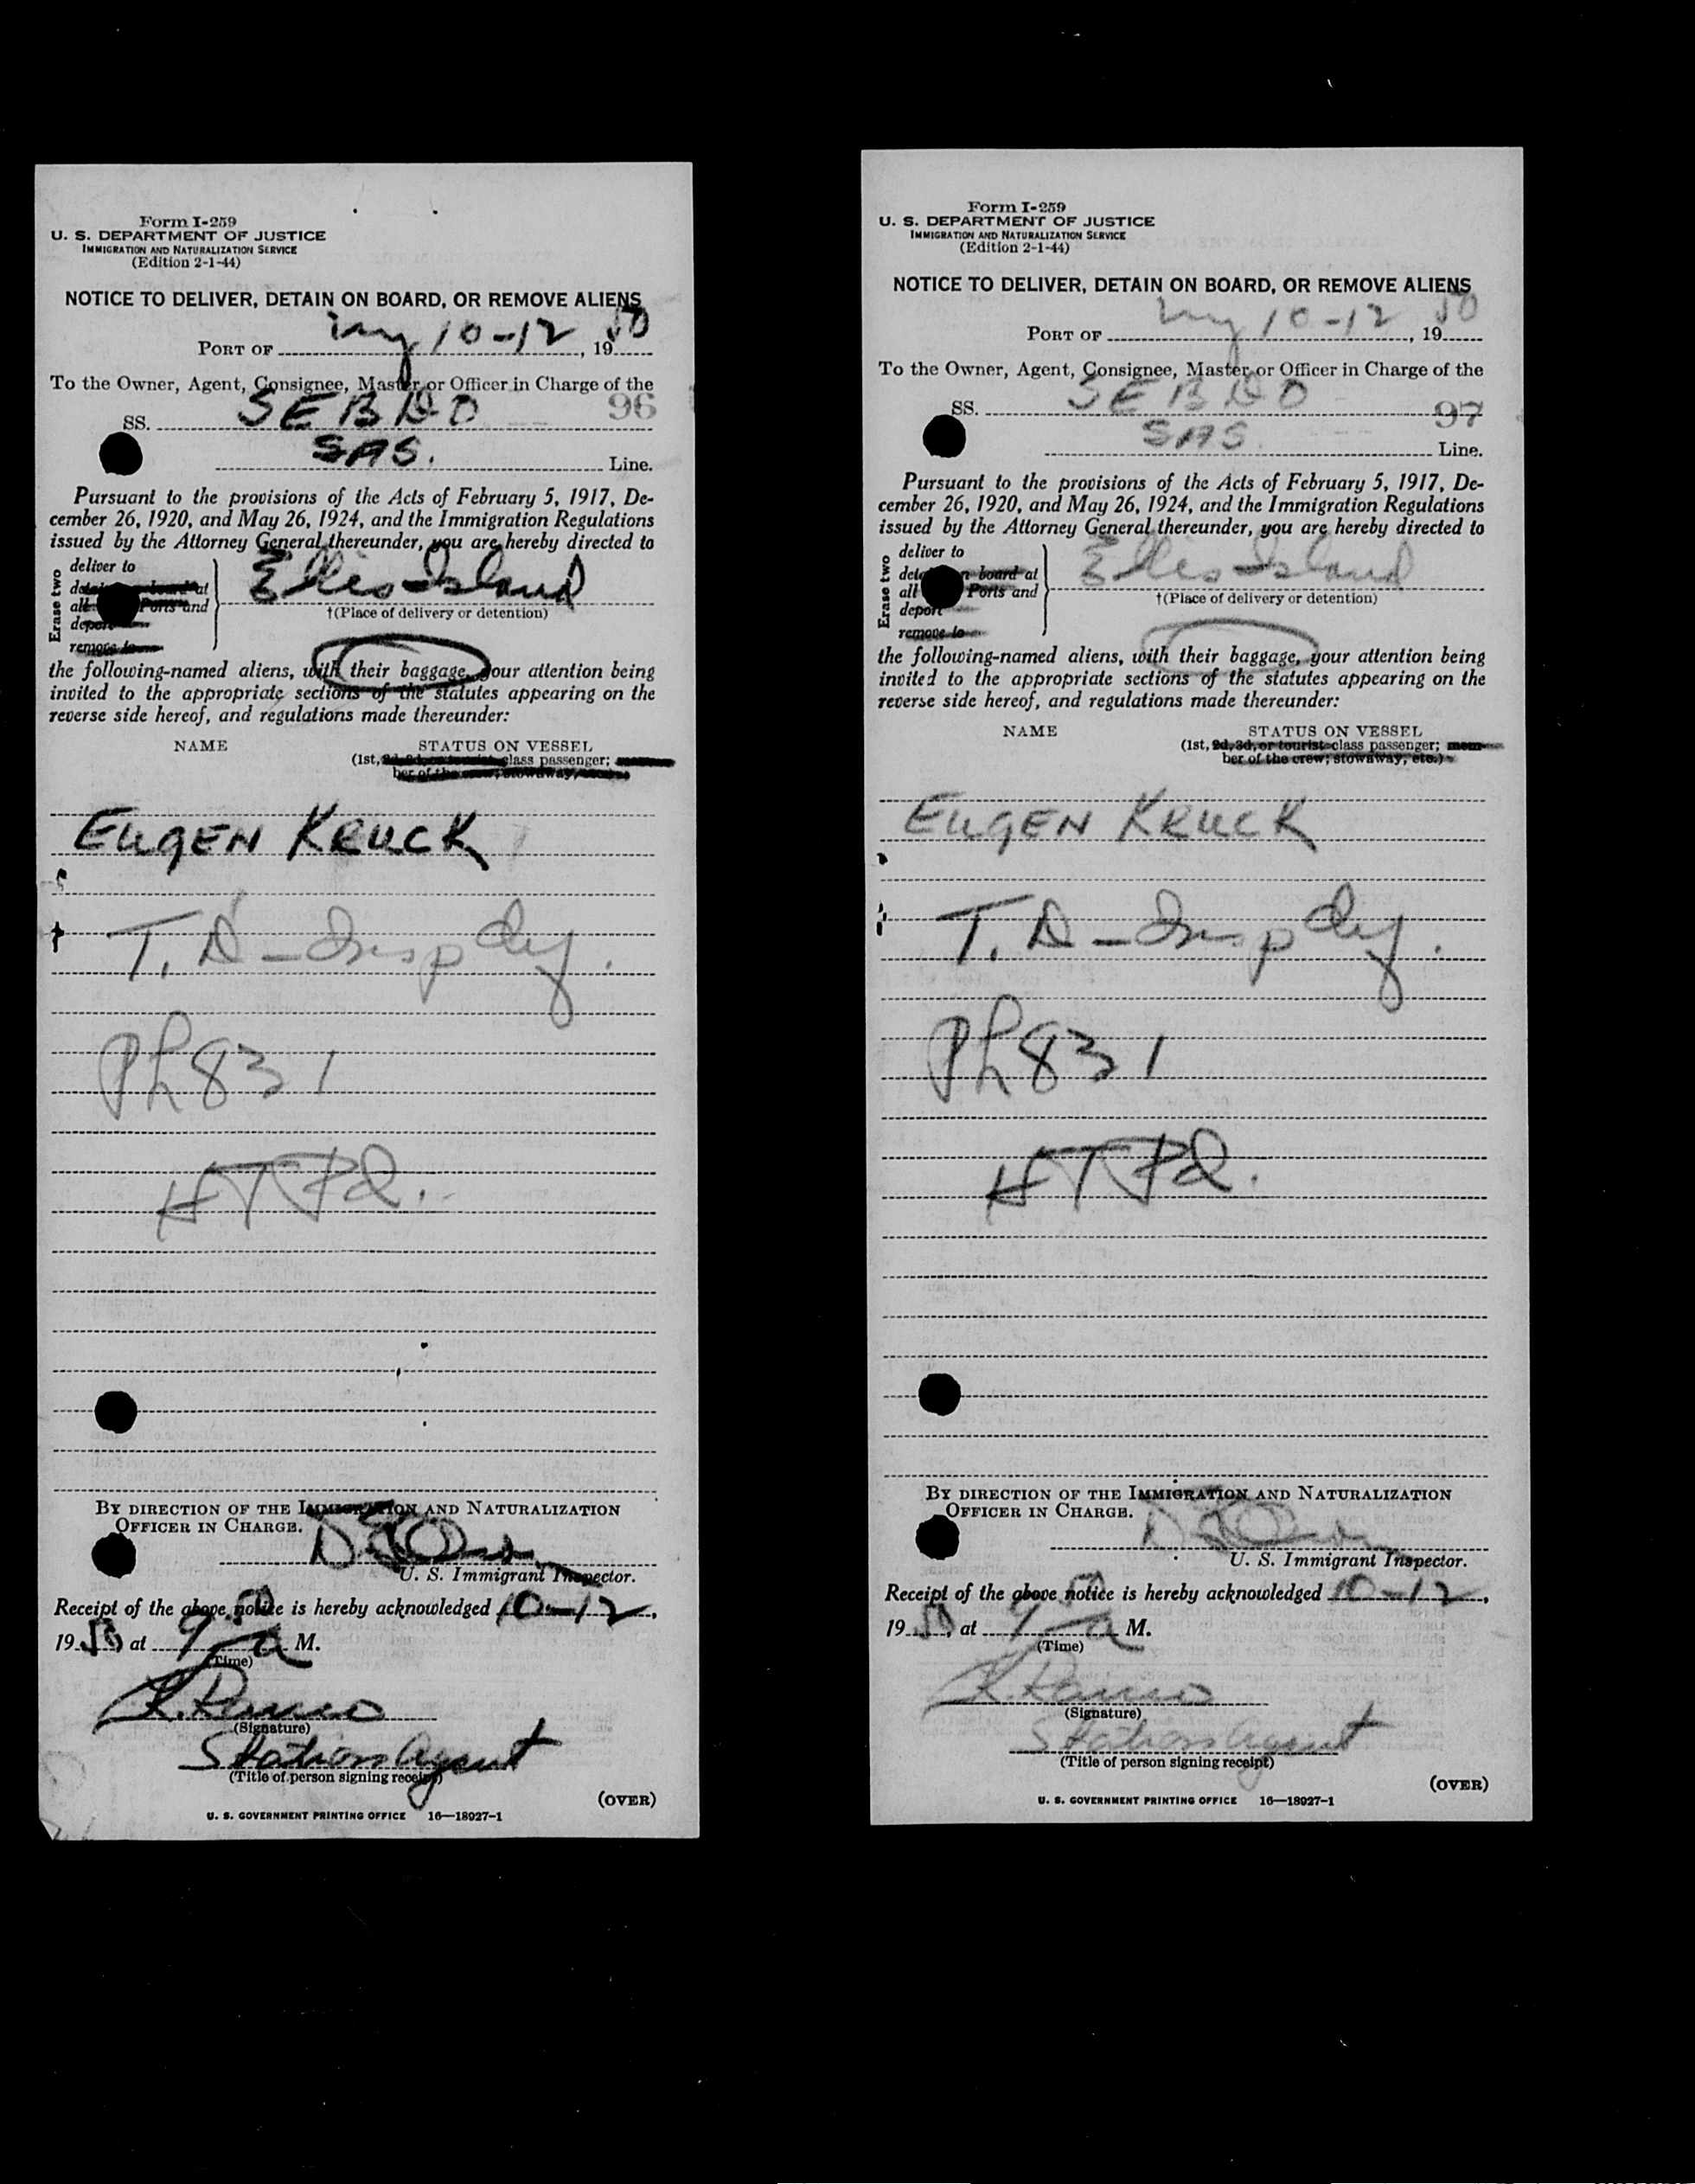 Form I-259
U. S. DEPARTMENT OF JUSTICE
IMMIGRATION AND NATURALIZATION SERVICE
(Edition 2-1-44)
NOTICE TO DELIVER, DETAIN ON BOARD, OR REMOVE ALIENS
PORT OF ny 10-12, 19 50
To the Owner, Agent, Consignee, Master or Officer in Charge of the
96
SS. SEBDO
SAS. Line.
Pursuant to the provisions of the Acts of February 5, 1917, De-
cember 26, 1920, and May 26, 1924, and the Immigration Regulations
issued by the Attorney General thereunder, you are hereby directed to
Erase two
deliver to
board at
all Ports and
depor
remove to
Ellis Island
†(Place of delivery or detention)
the following-named aliens, with their baggage, your attention being
invited to the appropriate sections of the statutes appearing on the
reverse side hereof, and regulations made thereunder:
NAME STATUS ON VESSEL
(1st, 2d, 3d, or tourist-class passenger;
ber of the crew; stowaway, etc.)
EUGEN KRUCK
T. D - Insp
Ph 831
HT Pd.
BY DIRECTION OF THE IMMIGRATION AND NATURALIZATION
OFFICER IN CHARGE.
U. S. Immigrant Inspector.
Receipt of the above notice is hereby acknowledged 10-12,
19 50 at 9 50 a M.
(Time)
(Signature)
Station Agent
(Title of person signing receipt)
(OVER)
U. S. GOVERNMENT PRINTING OFFICE 16—18927-1
Form I-259
U. S. DEPARTMENT OF JUSTICE
IMMIGRATION AND NATURALIZATION SERVICE
(Edition 2-1-44)
NOTICE TO DELIVER, DETAIN ON BOARD, OR REMOVE ALIENS
PORT OF ny 10-12, 19 50
To the Owner, Agent, Consignee, Master or Officer in Charge of the
SS. SEBDO 97
SAS. Line.
Pursuant to the provisions of the Acts of February 5, 1917, De-
cember 26, 1920, and May 26, 1924, and the Immigration Regulations
issued by the Attorney General thereunder, you are hereby directed to
Erase two
deliver to
deta n board at
all Ports and
deport
remove to
Ellis Island
†(Place of delivery or detention)
the following-named aliens, with their baggage, your attention being
invited to the appropriate sections of the statutes appearing on the
reverse side hereof, and regulations made thereunder:
NAME STATUS ON VESSEL
(1st, 2d, 3d, or tourist-class passenger; mem-
ber of the crew; stowaway, etc.)
EUGEN KRUCK
T. D - Insp
Ph 831
HT Pd.
BY DIRECTION OF THE IMMIGRATION AND NATURALIZATION
OFFICER IN CHARGE.
U. S. Immigrant Inspector.
Receipt of the above notice is hereby acknowledged 10-12,
19 50, at 9 50 a M.
(Time)
(Signature)
Station Agent
(Title of person signing receipt)
(OVER)
U. S. GOVERNMENT PRINTING OFFICE 16—18927-1